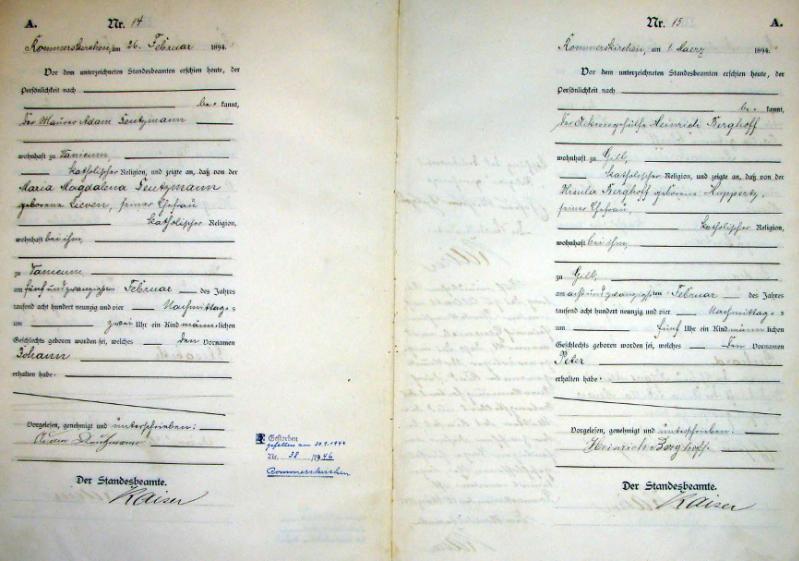 A. Nr. 14
Rommerskirchen, am 26. Februar 1894.
Vor dem unterzeichneten Standesbeamten erschien heute, der
Persönlichkeit nach
be- kannt,
Der Maurer Adam
wohnhaft zu Vanicum,
katholischer Religion, und zeigte an, daß von der
Maria Magdalena
geborene Lieven, seiner Ehefrau
katholischer Religion,
wohnhaft bei ihm,
zu Vanicum
am fünf und zwanzigsten Februar des Jahres
tausend acht hundert neunzig und vier Nachmittags
um zwei Uhr ein Kind männlichen
Geschlechts geboren worden sei, welches den Vornamen
Johann
erhalten habe.
Vorgelesen, genehmigt und unterschrieben:
Adam
Der Standesbeamte.
Kaiser
Gestorben
gefallen am
Nr. 38 / 1946
Rommerskirchen
Nr. 15. A.
Rommerskirchen, am 1 Maerz 1894
Vor dem unterzeichneten Standesbeamten erschien heute, der
Persönlichkeit nach
be- kannt,
Der Ackergehülfe Heinrich Berghoff
wohnhaft zu Gill,
katholischer Religion, und zeigte an, daß von der
Ursula Berghoff geborene Huppertz,
seiner Ehefrau,
katholischer Religion,
wohnhaft bei ihm,
zu Gill,
am acht und zwanzigsten Februar des Jahres
tausend acht hundert neunzig und vier Nachmittags
um fünf Uhr ein Kind männlichen
Geschlechts geboren worden sei, welches den Vornamen
Peter
erhalten habe.
Vorgelesen, genehmigt und unterschrieben:
Heinrich Berghoff
Der Standesbeamte.
Kaiser